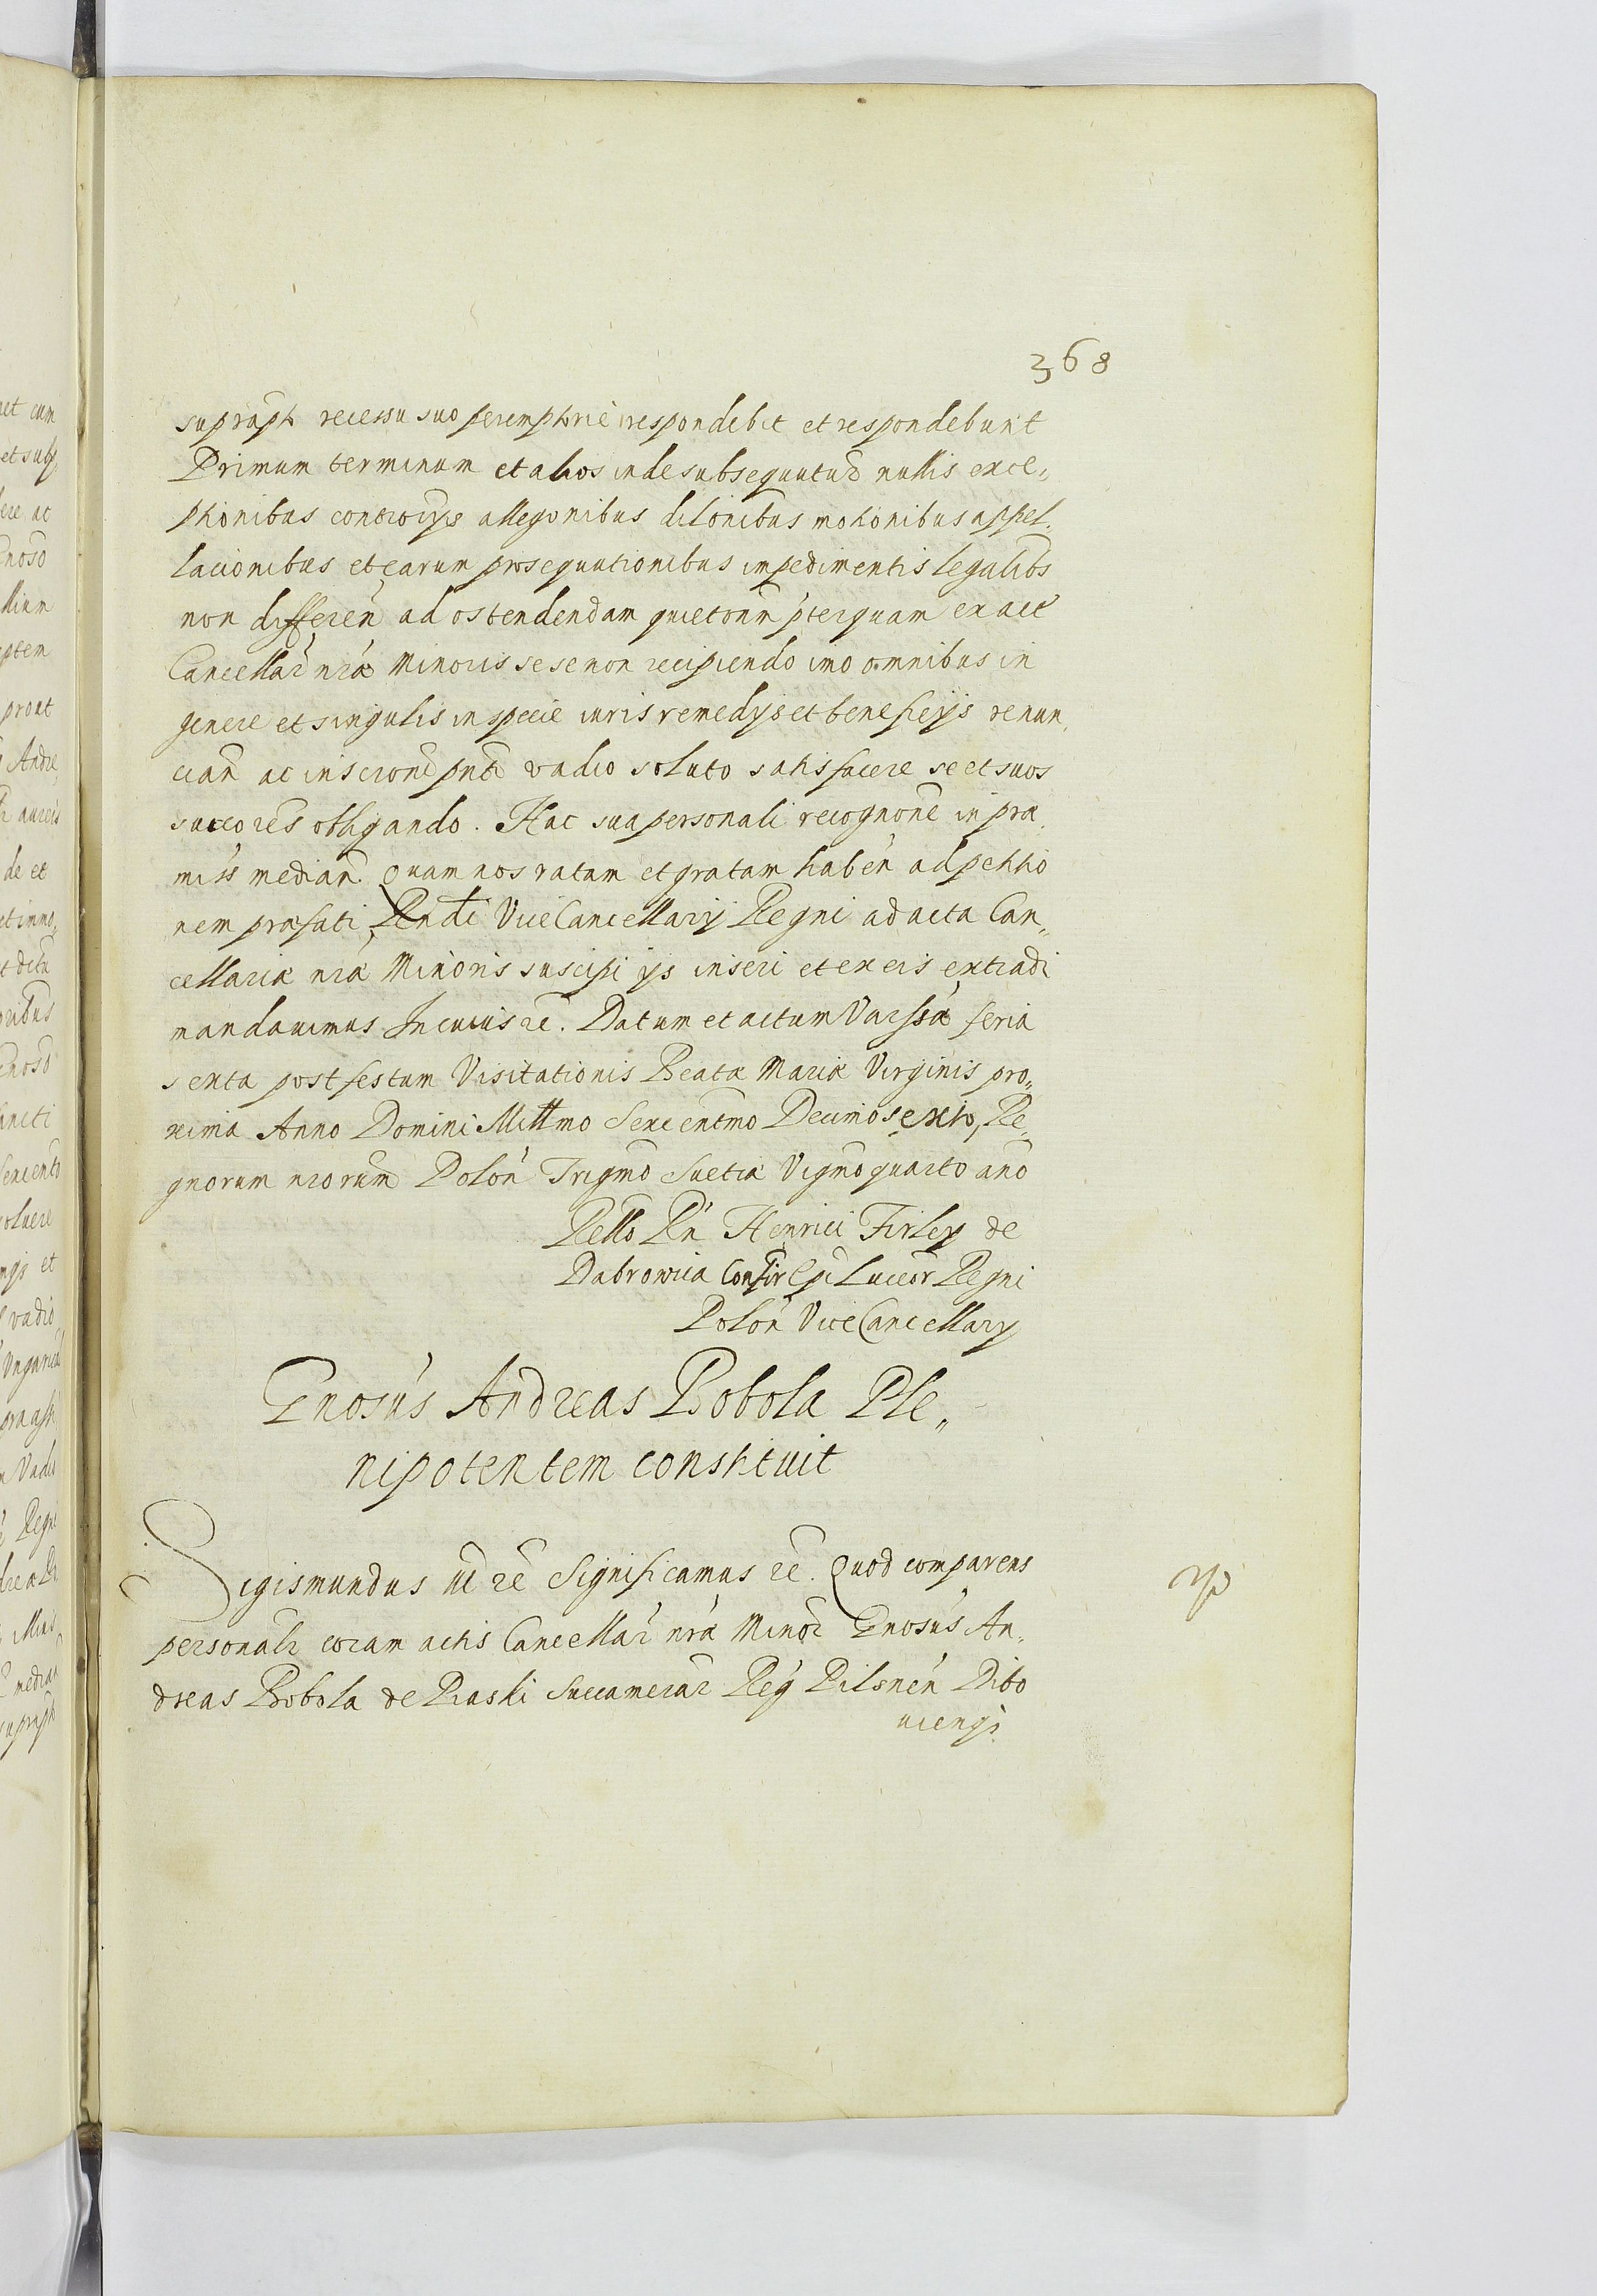 368
suprapti recessu suo peremptorie respondebit et respondebunt
Primum terminum et alios inde subsequutur nullis exce„
ptionibus allegonibus dilonibus motionibus appel.
lacionibus et earum prosequutionibus impedimentis legalibs
non differen ad ostendendam quietonem pterquam ex act
Cancellar nrae Minoris sese non recipiendo imo omnibus in
genere et singulis in specie iuris remedijs et beneficijs renun,
cian ac inscrone pnti vadio soluto satisfacere se et suos
succores obligando. Hac sua personali recognone in prae,
miss median Quam nos ratam et gratam haben ad petitio
nem praefati Rndi ViceCancellarij Regni ad acta Can„
cellariae nrae Minoris suscipi ijs inseri et ex eis extradi
mandavimus In cuius re. Datum et actum Varssae feria
sexta post festum Visitationis Beatae Mariae Virginis pro„
xima Anno Domini Millmo Sexcentmo Decimosexto, Re„
gnorum nrorum Polon Trigmo Suetiae Vigmo quarto ano
Rello Rn Henrici Firley de
Dabrowica Confir Epi Luceor Regni
Polon ViceCancellary
Gnosus Andreas Bobola Ple„
nipotentem constituit
Sigismundus III re Significamus re. Quod comparens
personalr coram actis Cancellar nrae Minor Gnosus An„
dreas Bobola de Piaski Succamerar Reg Pilsnen Dibo
viengi